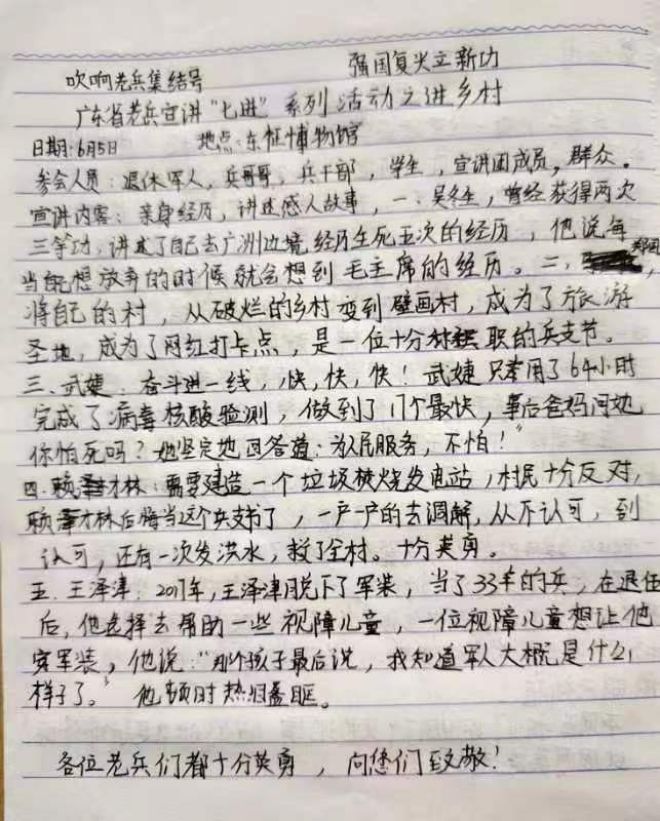 吹响老兵集结号 强国复兴立新功
广东省老兵宣讲“七进”系列活动之进乡村
日期:6月5日 地点:东征博物馆
参会人员:退休军人,兵哥哥,兵干部,学生,宣讲团成员,群众。
宣讲内容:亲身经历,讲述感人故事,一、吴冬生,曾经获得两次
三等功,讲述了自己去广州边境经历生死五次的经历,他说每
当能想放弃的时候就会想到毛主席的经历。二、
将自己的村,从破烂的乡村变到壁画村,成为了旅游
圣地,成为了网红打卡点,是一位十分称职的兵支书。
三、武婕:奋斗进一线,快,快,快!武婕只拿用了64小时
完成了病毒核酸验测,做到了17个最快,事后爸妈问她
你怕死吗?她坚定地回答道:为人民服务,不怕!”
四、赖才林:需要建造一个垃圾焚烧发电站,村民十分反对,
赖才林后悔当这个兵支书了,一户一户的去调解,从不认可,到
认可,还有一次发洪水,救了全村。十分英勇。
五、王泽津:2017年,王泽津脱下了军装,当了33年的兵,在退伍
后,他选择去帮助一些视障儿童,一位视障儿童想让他
穿军装,他说:“那个孩子最后说,我知道军人大概是什么
样子了。”他顿时热泪盈眶。
各位老兵们都十分英勇,向您们致敬!